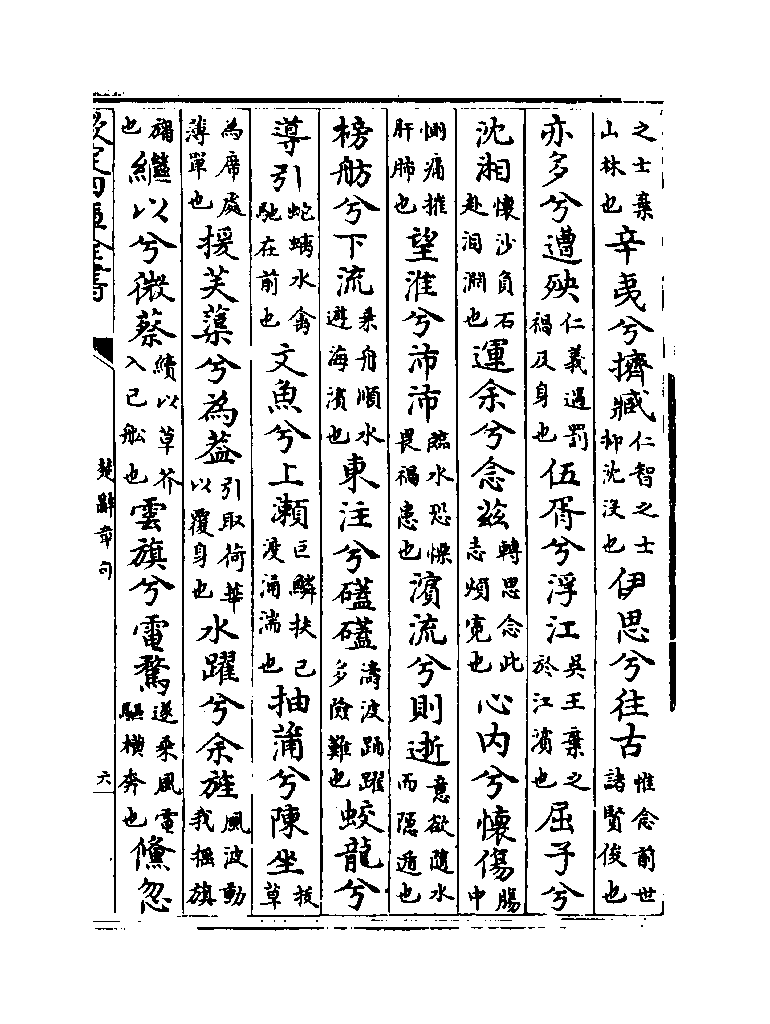 之士棄山林也辛夷兮擠臧仁智之士抑沈没也伊思兮往古惟念前世諸賢俊也
亦多兮遭殃仁義遇罰禍及身也伍胥兮浮江吳王棄之於江濱也屈子兮
沈湘懷沙負石赴汨淵也運余兮念兹轉思念此志煩寃也心内兮懷傷腸中
惻痛摧肝肺也望淮兮沛沛臨水恐慄畏禍患也濱流兮則逝意欲隨水而隱遁也
榜舫兮下流乘舟順水避海濱也東注兮礚礚濤波踊躍多險難也蛟龍兮
導引蛇螭水禽馳在前也文魚兮上瀬巨鱗扶己渡涌湍也抽蒲兮陳坐拔草
為席處薄單也援芙蕖兮為蓋引取荷華以覆身也水躍兮余旌風波動我搖旗
旛也繼以兮微蔡續以草芥入己船也雲旗兮電騖遂乘風電驅横奔也儵忽
欽定四庫全書
楚辭章句
六